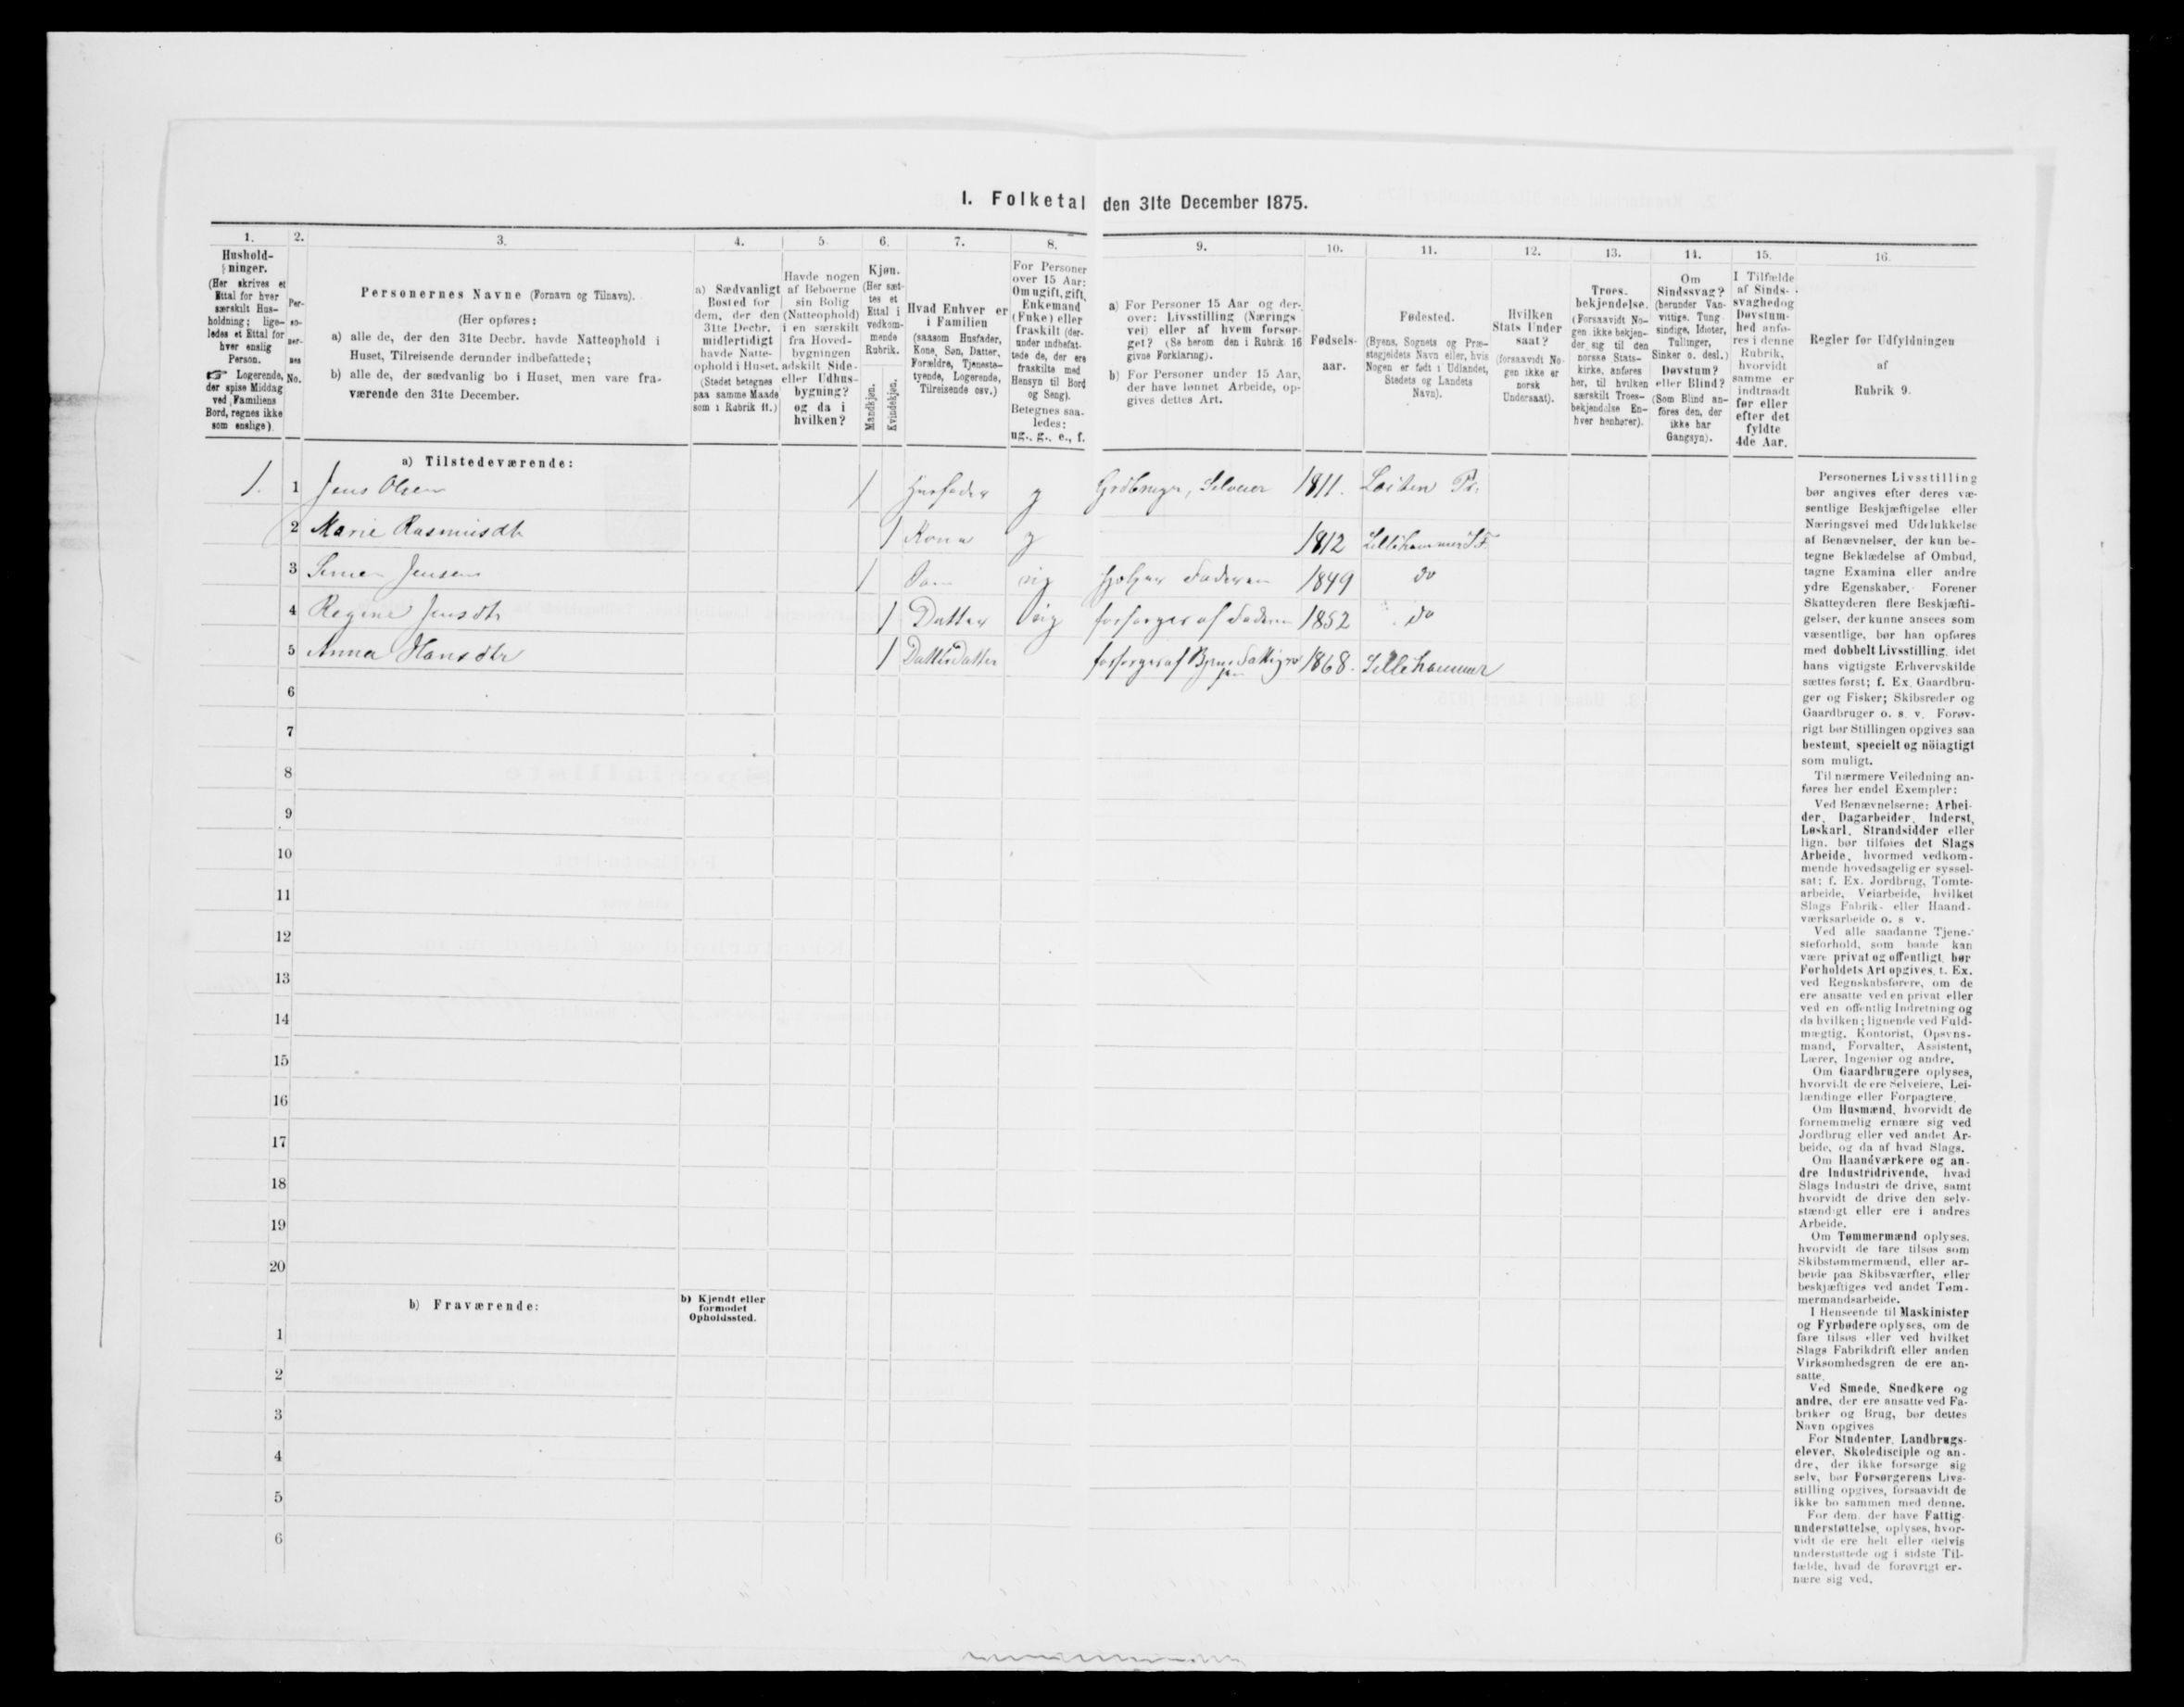 I. Folketal den 31te December 1875.
1.
Hushold-
ninger.
(Her skrives et
Ettal for hver
særskilt Hus-
holdning; lige-
ledes et Ettal for
hver enslig
Person.
☞ Logerende,
der spise Middag
ved Familiens
Bord, regnes ikke
som enslige).
2.
Per-
so-
ner-
nes
No.
3.
Personernes Navne (Fornavn og Tilnavn).
(Her opføres:
a) alle de, der den 31te Decbr. havde Natteophold i
Huset, Tilreisende derunder indbefattede;
b) alle de, der sædvanlig bo i Huset, men vare fra-
værende den 31te December.
4.
a) Sædvanligt
Bosted for
dem, der den
31te Decbr.
midlertidigt
havde Natte-
ophold i Huset.
(Stedet betegnes
paa samme Maade
som i Rubrik 11.)
5.
Havde nogen
af Beboerne
sin Bolig
(Natteophold)
i en særskilt
fra Hoved-
bygningen
adskilt Side-
eller Udhus-
bygning?
og da i
hvilken?
6.
Kjøn.
(Her sæt-
tes et
Ettal i
vedkom-
mende
Rubrik.
Mandkjøn.
Kvindekjøn.
7.
Hvad Enhver er
i Familien
(saasom Husfader,
Kone, Søn, Datter,
Forældre, Tjeneste-
tyende, Logerende,
Tilreisende osv.)
8.
For Personer
over 15 Aar:
Om ugift, gift,
Enkemand
(Enke) eller
fraskilt (der-
under indbefat-
tede de, der ere
fraskilte med
Hensyn til Bord
og Seng).
Betegnes saa-
ledes:
ug., g., e., f.
9.
a) For Personer 15 Aar og der-
over: Livsstilling (Nærings
vei) eller af hvem forsør-
get? (Se herom den i Rubrik 16
givne Forklaring).
b) For Personer under 15 Aar,
der have lønnet Arbeide, op-
gives dettes Art.
10.
Fødsels-
aar.
11.
Fødested.
(Byens, Sognets og Præ-
stegjeldets Navn eller, hvis
Nogen er født i Udlandet,
Stedets og Landets
Navn).
12.
Hvilken
Stats Under
saat?
(forsaavidt No-
gen ikke er
norsk
Undersaat).
13.
Troes-
bekjendelse.
(Forsaavidt No-
gen ikke bekjen-
der sig til den
norske Stats-
kirke, anføres
her, til hvilken
særskilt Troes-
bekjendelse En-
hver henhører).
14.
Om
Sindssvag?
(herunder Van-
vittige, Tung-
sindige, Idioter,
Tullinger,
Sinker o. desl.)
Døvstum?
eller Blind?
(Som Blind an-
føres den, der
ikke har
Gangsyn).
15.
I Tilfælde
af Sinds-
svaghed og
Døvstum-
hed anfø-
res i denne
Rubrik,
hvorvidt
samme er
indtraadt
før eller
efter det
fyldte
4de Aar.
16.
Regler for Udfyldningen
af
Rubrik 9.
a) Tilstedeværende:
1. 1 Jens Olsen 1 Husfader g Grdbruger, Selveier 1811. Løiten Pr.
2 Marie Rasmusdtr 1 Kone g 1812 Lillehammer
3 Jensen 1 Søn ug hjelper Faderen 1849 do
4 Regine Jensdtr 1 Datter ug forsørges af Faderen 1852 do
5 Anna Hansdtr 1 DatterDatter forsørges af 1868. Lillehammer
6
7
8
9
10
11
12
13
14
15
16
17
18
19
20
b) Fraværende:
b) Kjendt eller
formodet
Opholdssted.
1
2
3
4
5
6
Personernes Livsstilling
bør angives efter deres væ-
sentlige Beskjæftigelse eller
Næringsvei med Udelukkelse
af Benævnelser, der kun be-
tegne Beklædelse af Ombud,
tagne Examina eller andre
ydre Egenskaber. Forener
Skatteyderen flere Beskjæfti-
gelser, der kunne ansees som
væsentlige, bør han opføres
med dobbelt Livsstilling, idet
hans vigtigste Erhvervskilde
sættes først; f. Ex. Gaardbru-
ger og Fisker; Skibsreder og
Gaardbruger o. s. v. Forøv-
rigt bør Stillingen opgives saa
bestemt, specielt og nöiagtigt
som muligt.
Til nærmere Veiledning an-
føres her endel Exempler:
Ved Benævnelserne: Arbei-
der, Dagarbeider, Inderst,
Løskarl, Strandsidder eller
lign. bør tilføies det Slags
Arbeide, hvormed vedkom-
mende hovedsagelig er syssel-
sat; f. Ex. Jordbrug, Tomte-
arbeide, Veiarbeide, hvilket
Slags Fabrik- eller Haand-
værksarbeide o. s v.
Ved alle saadanne Tjene-
steforhold, som baade kan
være privat og offentligt, bør
Forholdets Art opgives, f. Ex.
ved Regnskabsførere, om de
ere ansatte ved en privat eller
ved en offentlig Indretning og
da hvilken; lignende ved Fuld-
mægtig, Kontorist, Opsyns-
mand, Forvalter, Assistent,
Lærer, Ingeniør og andre.
Om Gaardbrugere oplyses,
hvorvidt de ere Selveiere, Lei-
lændinge eller Forpagtere.
Om Husmænd, hvorvidt de
fornemmelig ernære sig ved
Jordbrug eller ved andet Ar-
beide, og da af hvad Slags.
Om Haandværkere og an-
dre Industridrivende, hvad
Slags Industri de drive, samt
hvorvidt de drive den selv-
stændigt eller ere i andres
Arbeide.
Om Tømmermænd oplyses,
hvorvidt de fare tilsøs som
Skibstømmermænd, eller ar-
beide paa Skibsværfter, eller
beskjæftiges ved andet Tøm-
mermandsarbeide.
I Henseende til Maskinister
og Fyrbødere oplyses, om de
fare tilsøs eller ved hvilket
Slags Fabrikdrift eller anden
Virksomhedsgren de ere an-
satte.
Ved Smede, Snedkere og
andre, der ere ansatte ved Fa-
briker og Brug, bør dettes
Navn opgives
For Studenter, Landbrugs-
elever, Skoledisciple og an-
dre, der ikke forsørge sig
selv, bør Forsørgerens Livs-
stilling opgives, forsaavidt de
ikke bo sammen med denne.
For dem, der have Fattig-
understøttelse, oplyses, hvor-
vidt de ere helt eller delvis
understøttede og i sidste Til-
fælde, hvad de forøvrigt er-
nære sig ved.